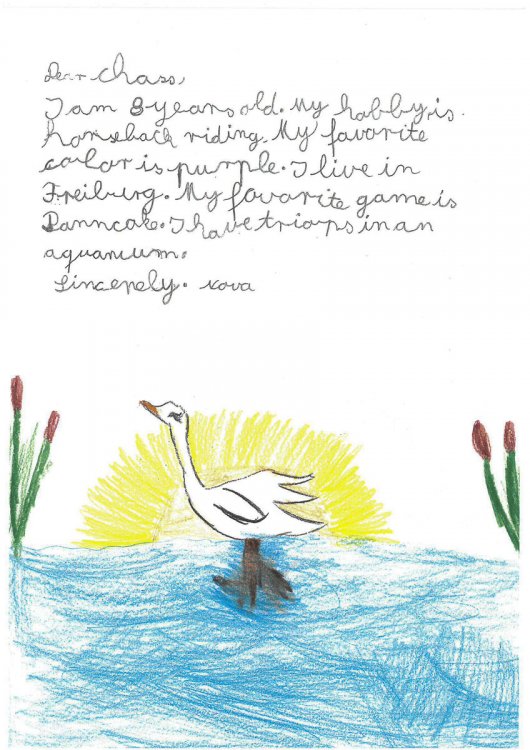 Dear Chass,
I am 8 years old. My hobby is
horseback riding. My favorite
color is purple. I live in
Freiburg. My favorite game is
Panncake. I have triops in an
aquarium.
Sincerely. xova